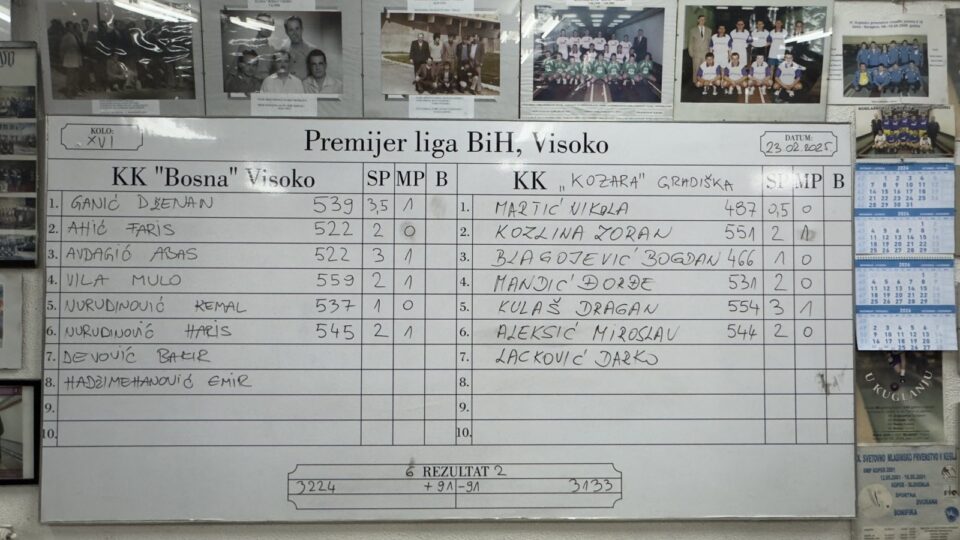 KOLO:
XVI
Premijer liga BiH, Visoko
DATUM:
23.02.2025
KK "Bosna" Visoko SP MP B KK „KOZARA“ GRADIŠKA SP MP B
1. GANIĆ DŽENAN 539 3,5 1 1. MARTIĆ NIKOLA 487 0,5 0
2. AHIĆ FARIS 522 2 0 2. KOZLINA ZORAN 551 2 1
3. AVDAGIĆ ABAS 522 3 1 3. BLAGOJEVIĆ BOGDAN 466 1 0
4. VILA MULO 559 2 1 4. MANDIĆ ĐORĐE 531 2 0
5. NURUDINOVIĆ KEMAL 537 1 0 5. KULAŠ DRAGAN 554 3 1
6. NURUDINOVIĆ HARIS 545 2 1 6. ALEKSIĆ MIROSLAV 544 2 0
7. DEVOVIĆ BAKIR 7. LACKOVIĆ DARKO
8. HADŽIMEHANOVIĆ EMIR 8.
9. 9.
10. 10.
6 REZULTAT 2
3224 +91 -91 3133
U KUGLANJU
X. SVETOVNO MLADINSKO PRVENSTVO V KEGLJ
KOPER - SLOVENIJA
BONIFIKA